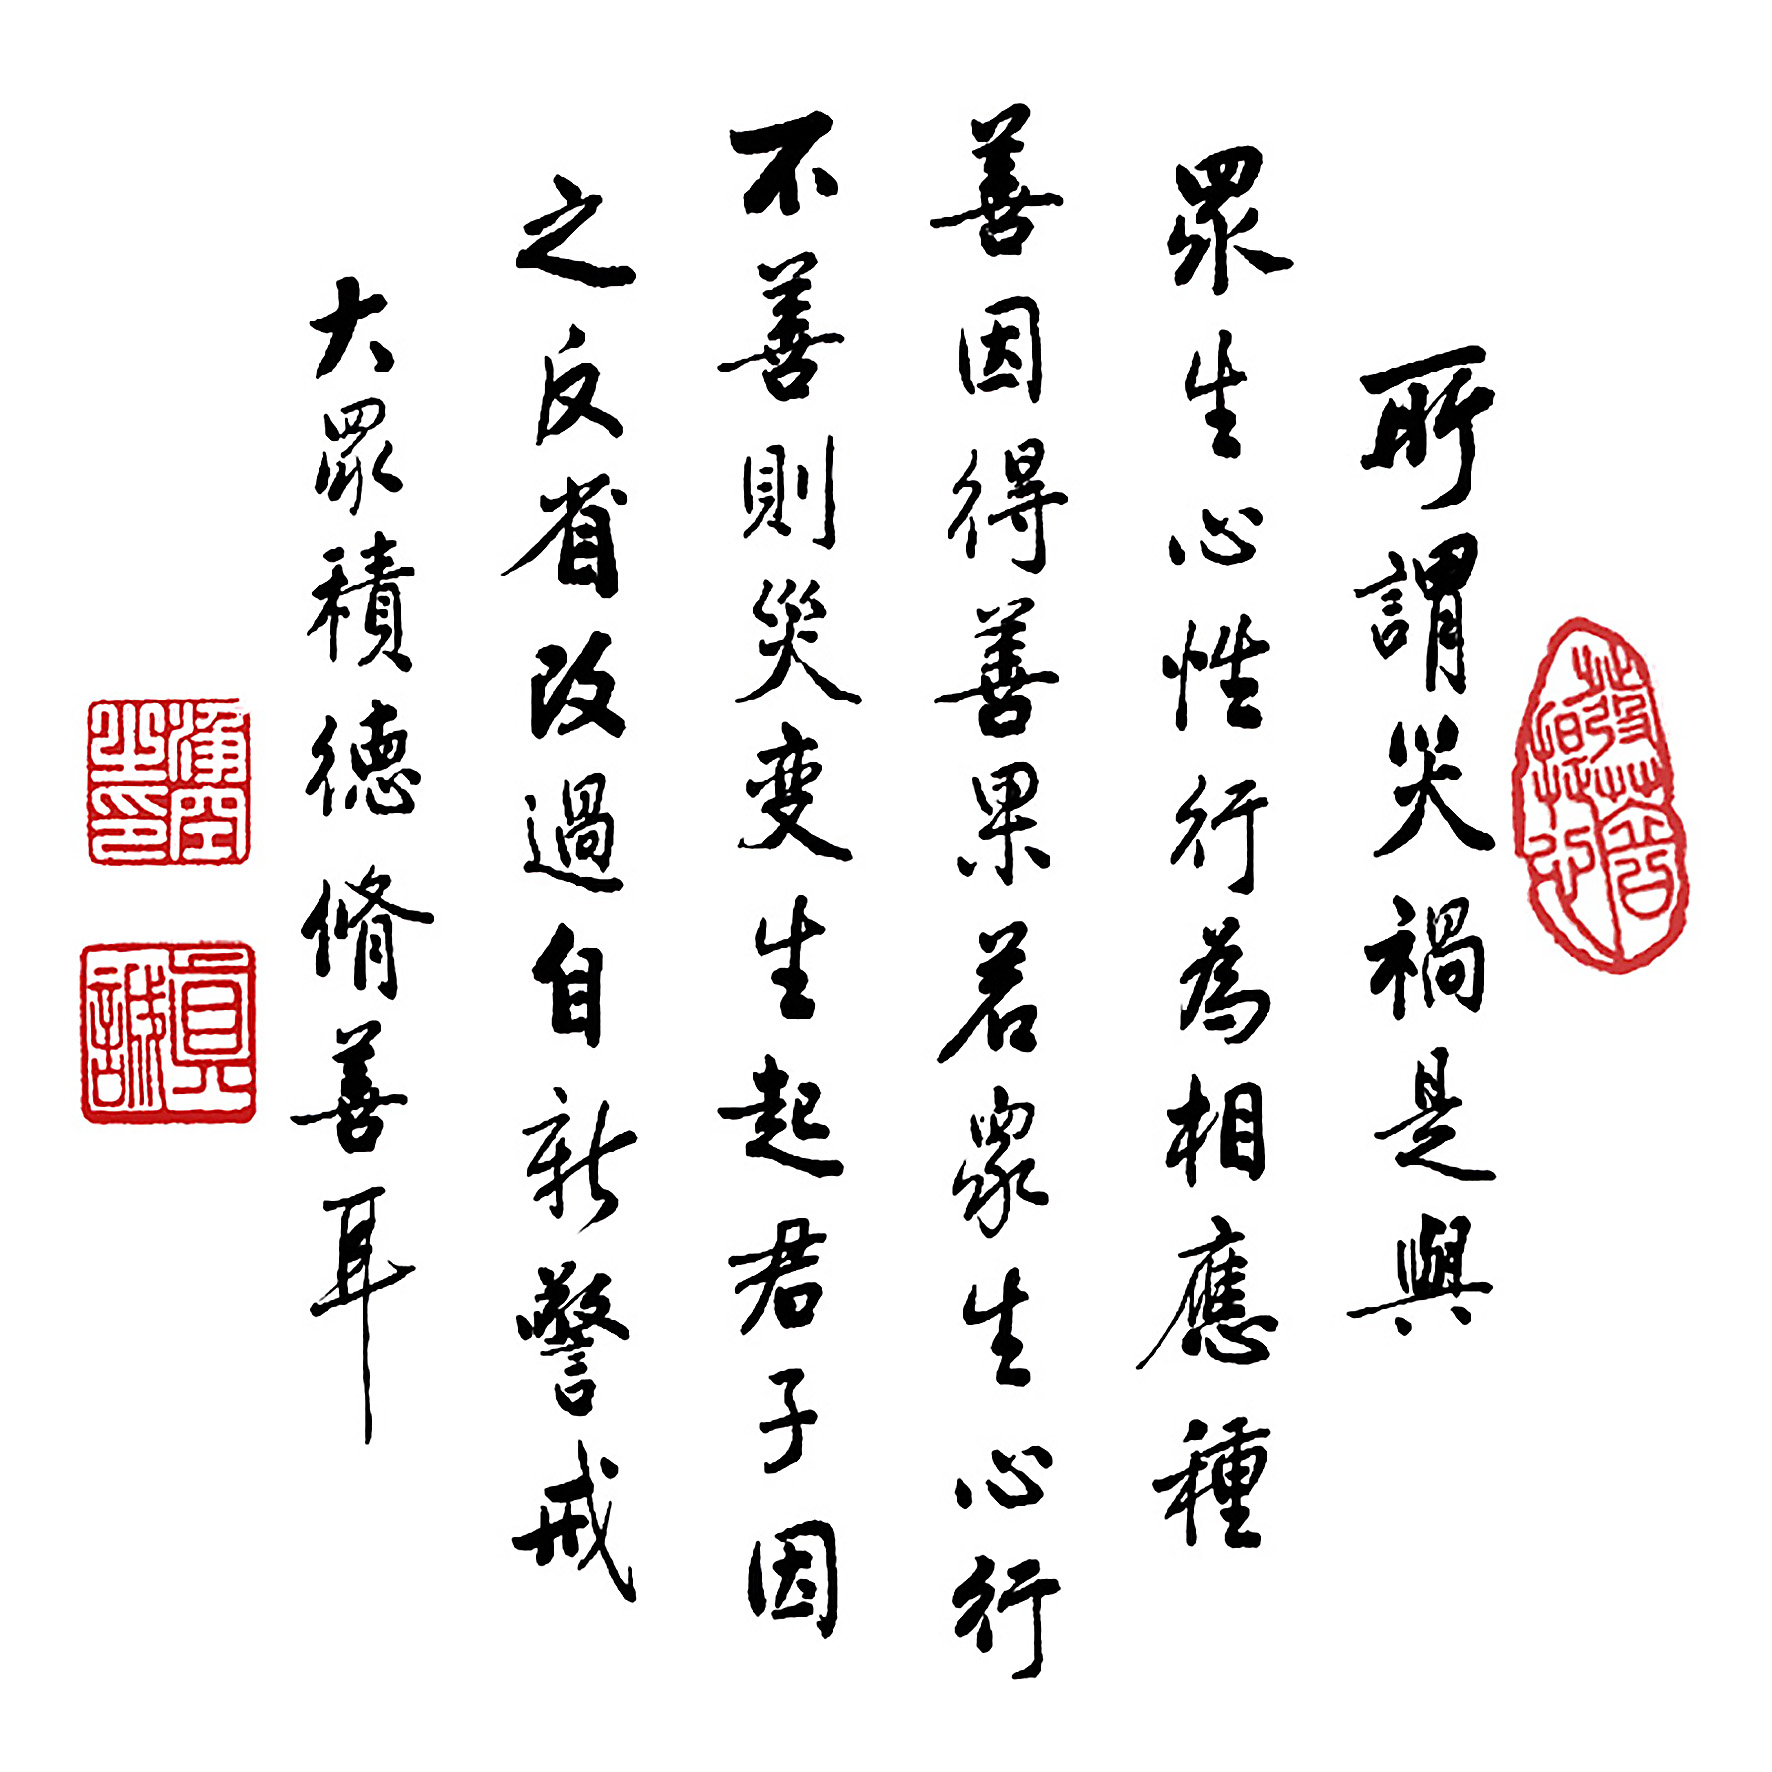 所謂災禍是與
眾生心性行為相應種
善因得善果若眾生心行
不善則災變生起君子因
之反省改過自新警戒
大眾積德脩善耳
淨空之印
真誠